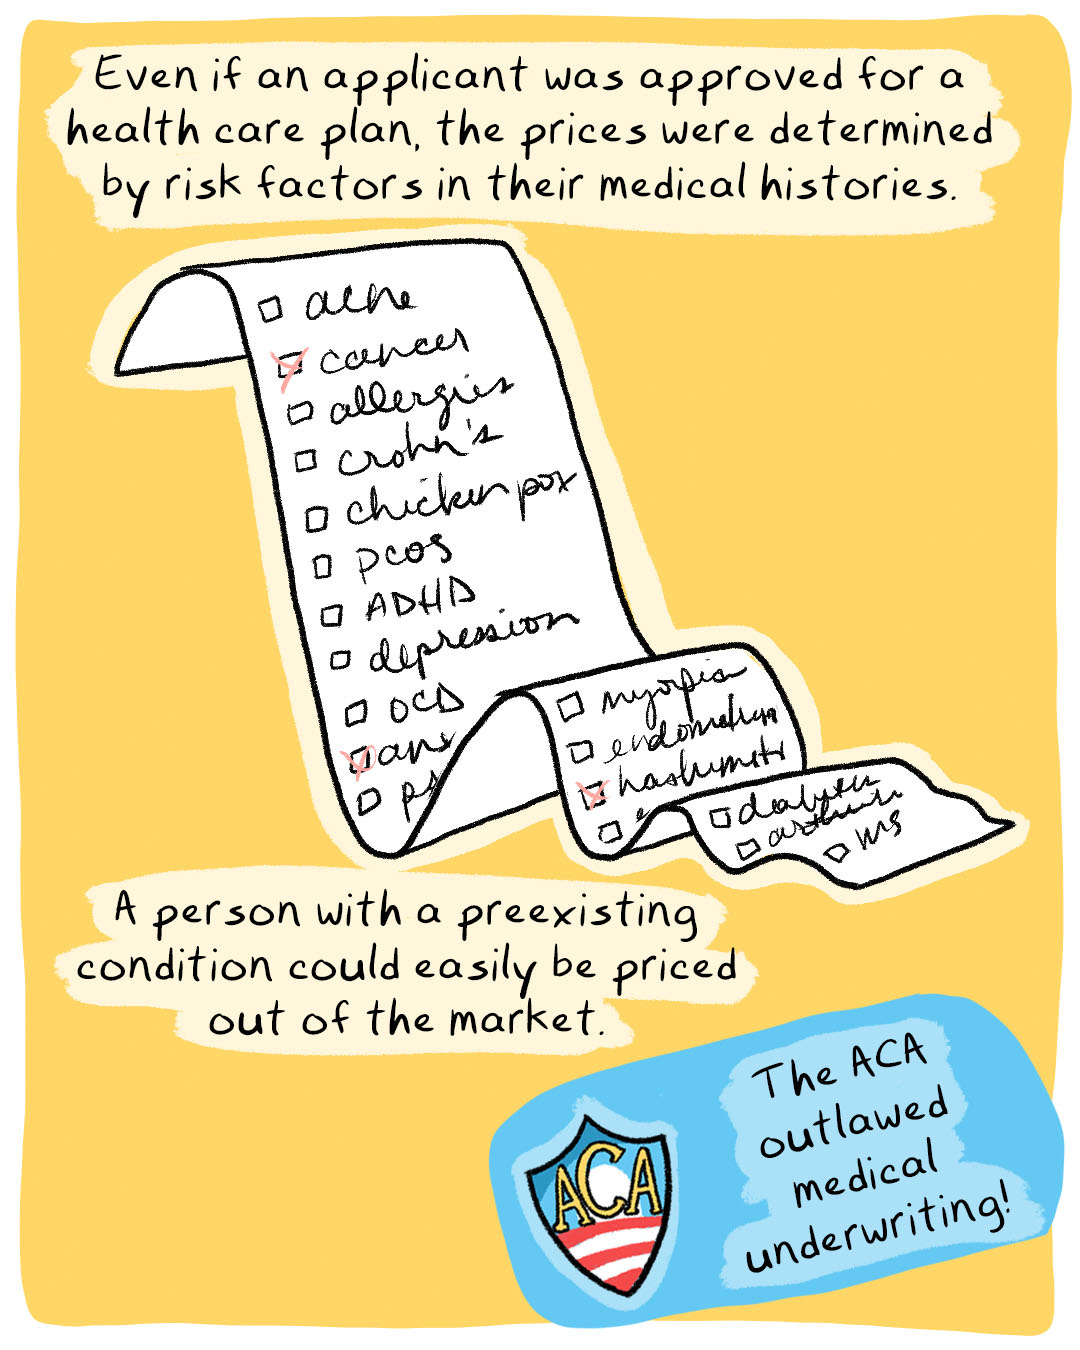 Even if an applicant was approved for a
health care plan, the prices were determined
by risk factors in their medical histories.
acne
cancer
allergies
crohn's
chicken pox
pcos
ADHD
depression
OCD
myopia
diabetes
MS
A person with a preexisting
condition could easily be priced
out of the market.
ACA
The ACA
outlawed
medical
underwriting!